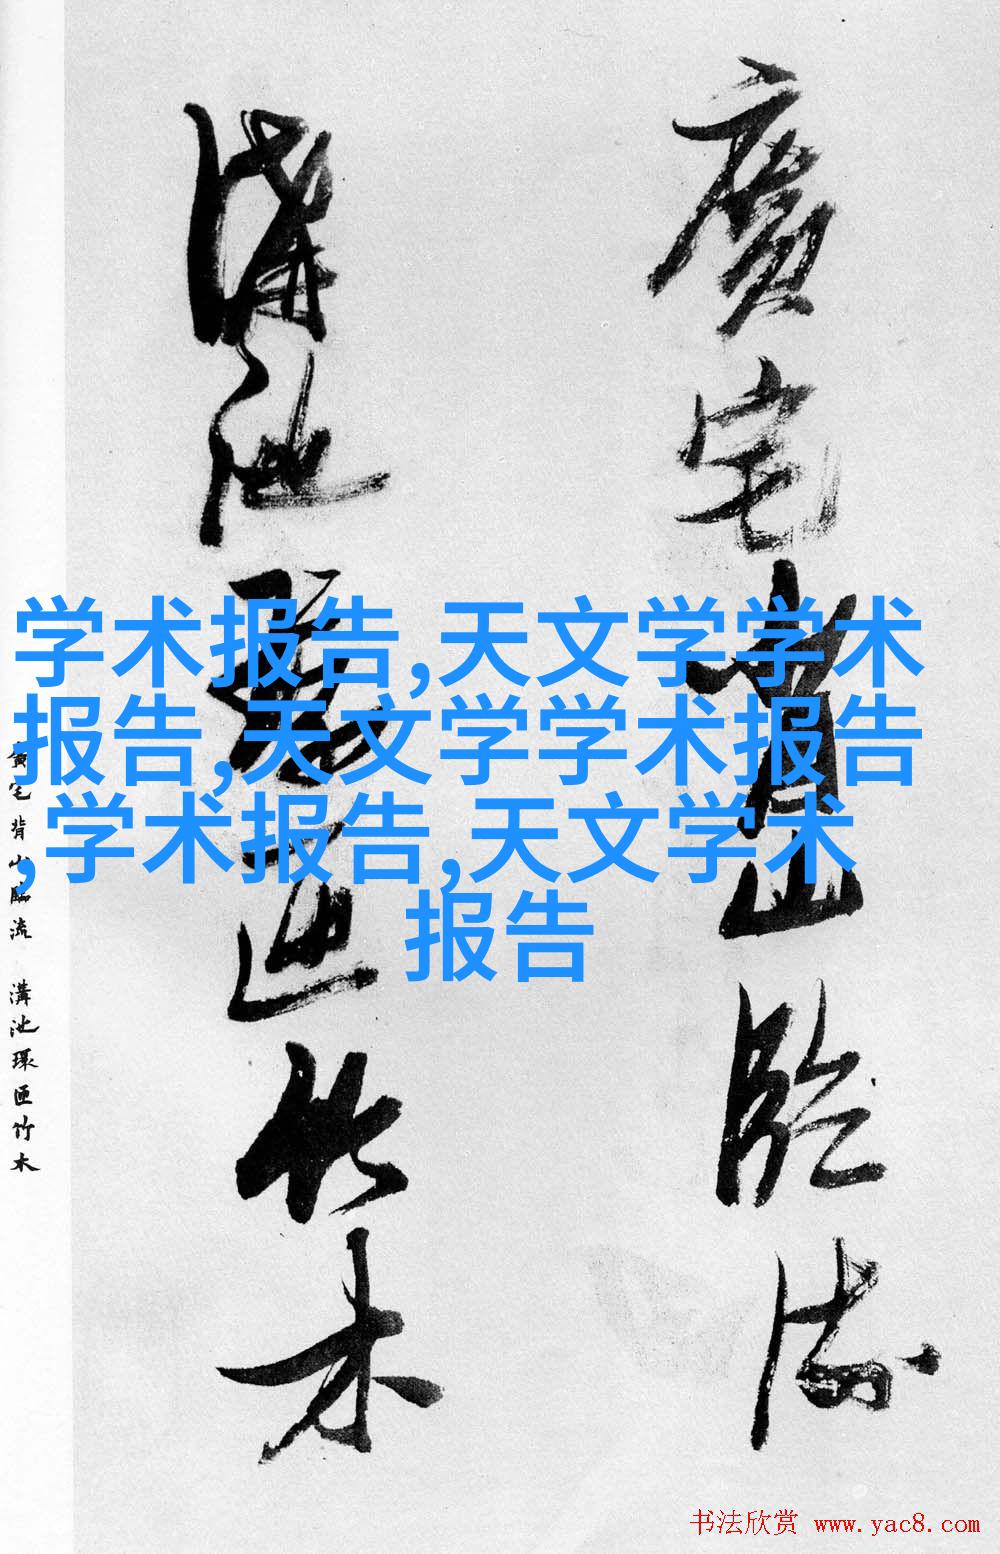 廣宅背山臨流
溝池環匝竹木
學术报告,天文学学术
报告,天文学学术报告
,学术报告,天文学术
报告
廣宅背山臨流 溝池環匝竹木
书法欣赏 www.yac8.com